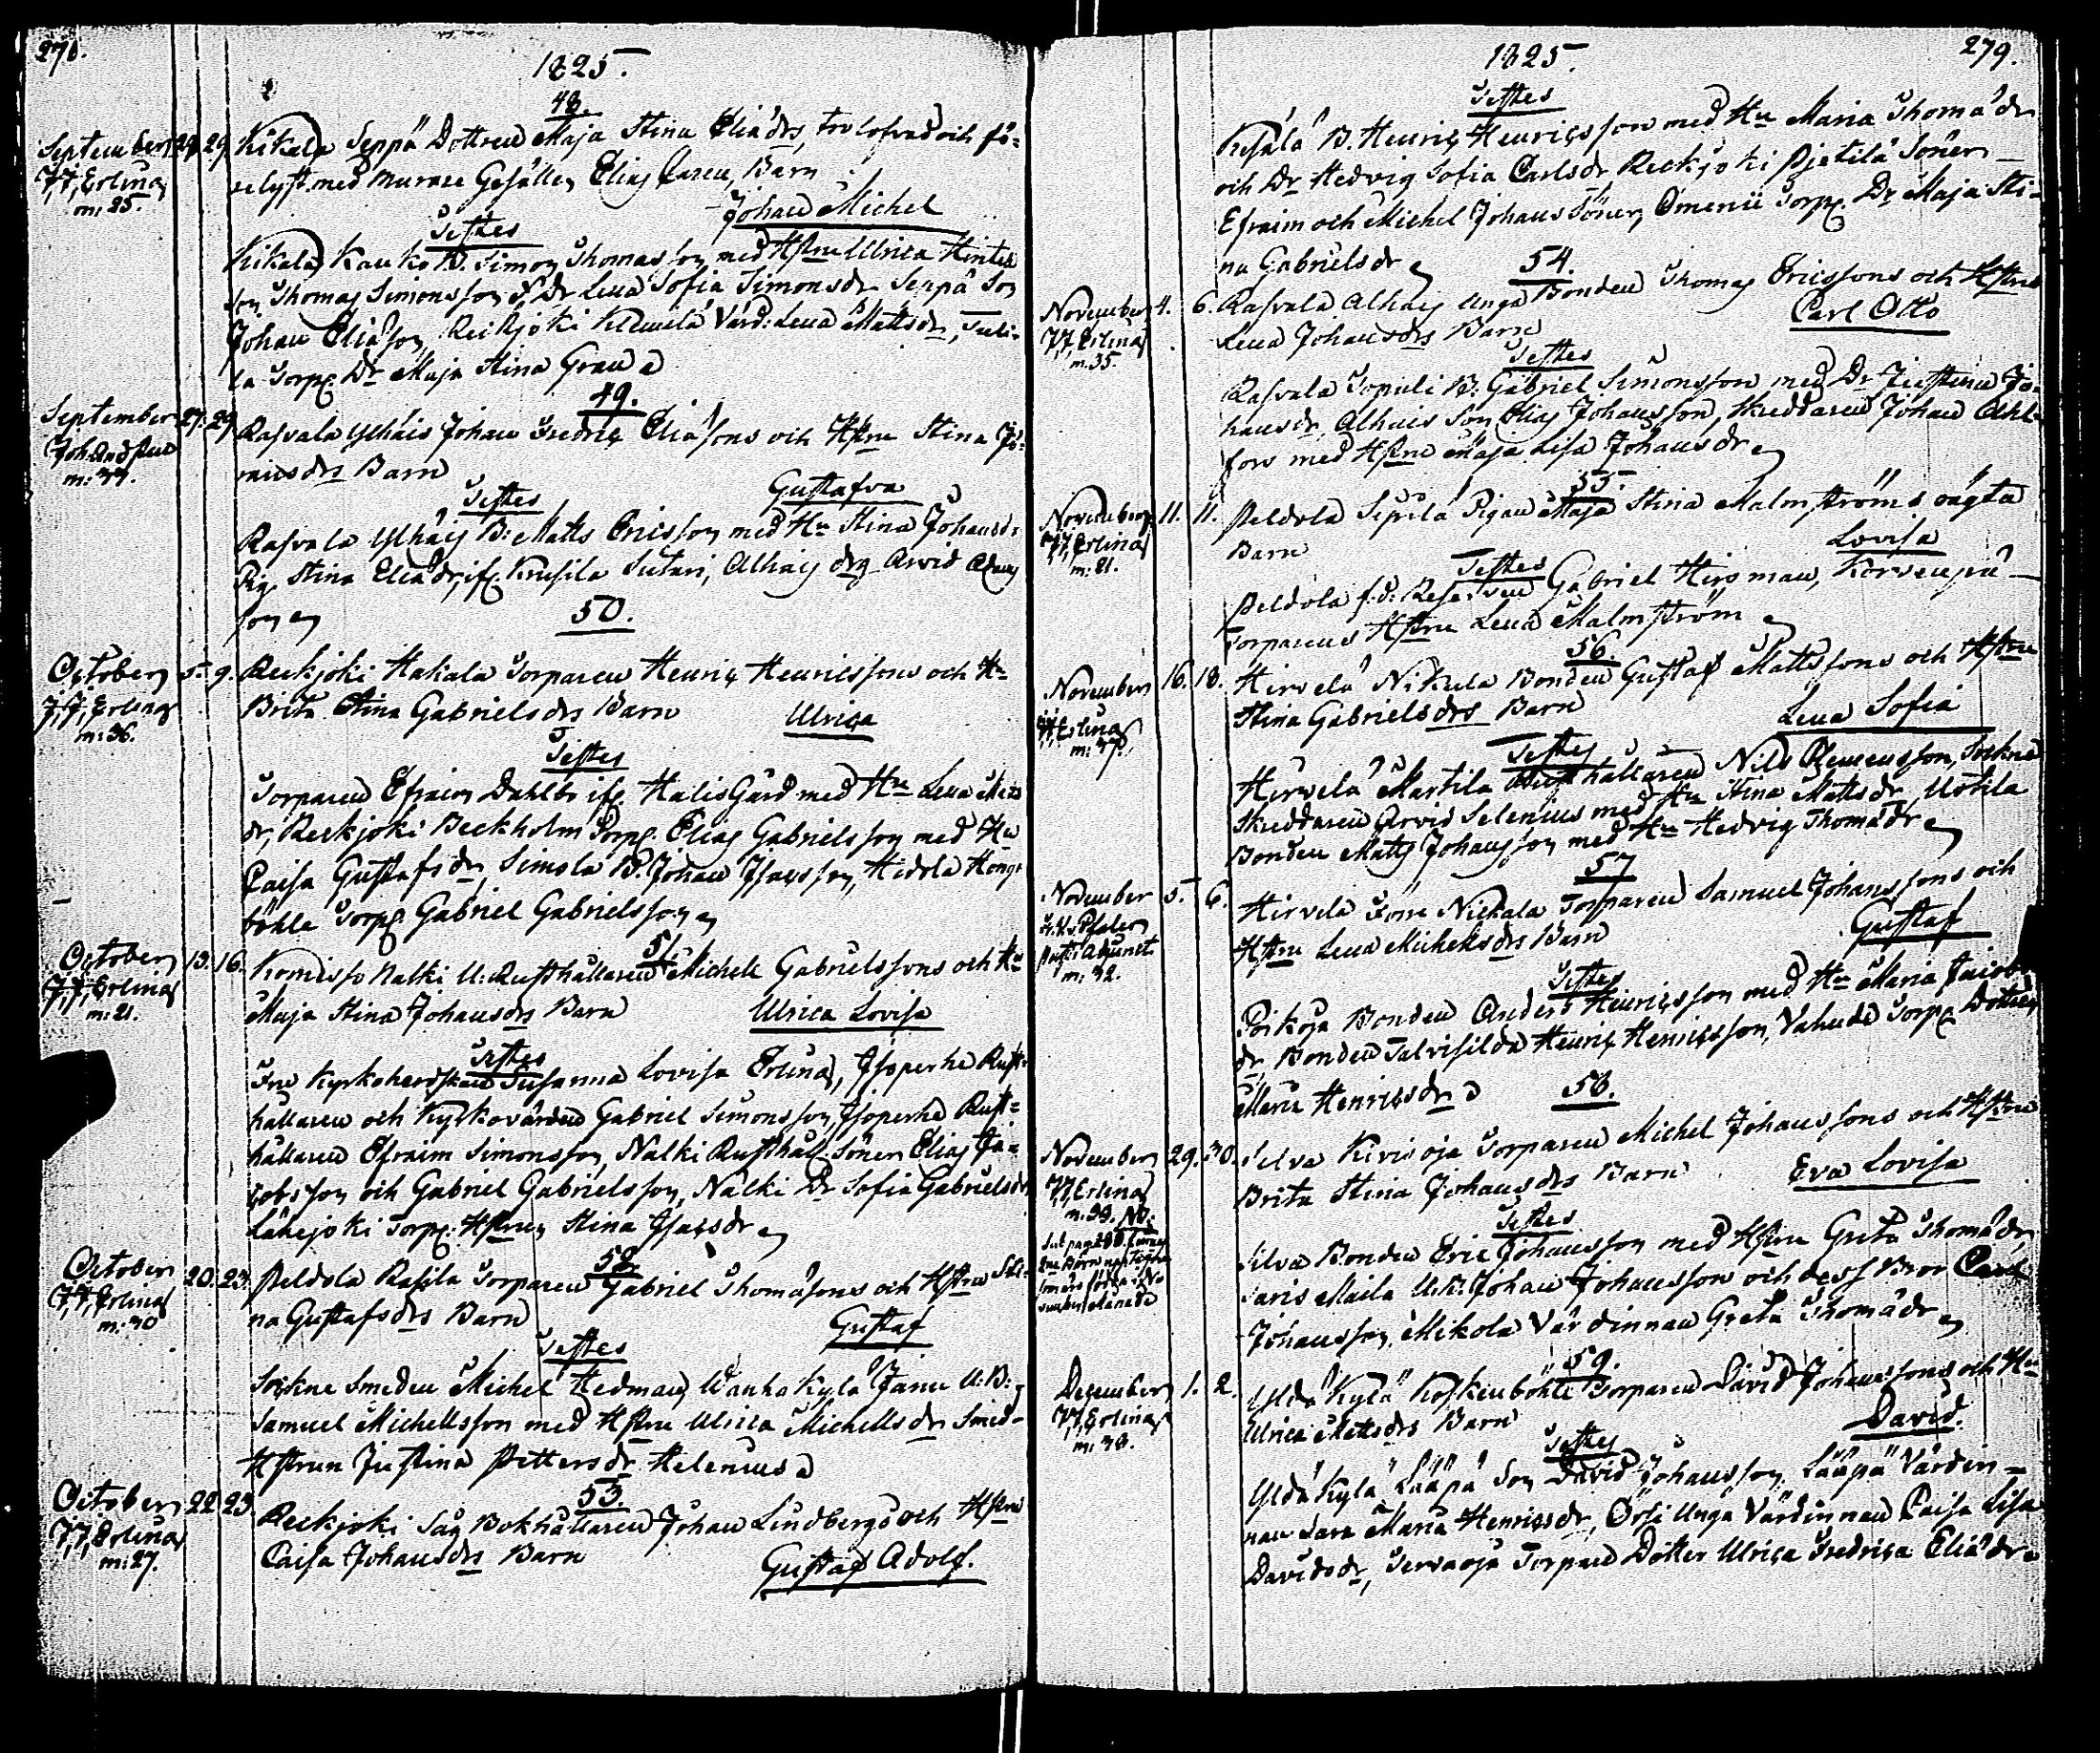 278.
1825.
48.
September 28. 29. Kikala Seppä Dottren Maja Stina Eliædrs, trolofvad och fö-
J.J. Erlina
m: 25.
relyst med Murare Gesällen Elias Caren, Barn
Johan Michel
Testes
Kikala Kauko B. Simon Thomasson med Hstru Ulrica
Son Thomas Simonsson, Dr Lena Sofia Simonsdr Seppä Son
Johan Eliæson, Reckjoki Klemelä Värd: Lena Mattsdr,
la Torp. Dr Maja Stina Gran
49.
September 27. 29. Rasvala Ylhäis Johan Fredric Eliæsons och Hstru Stina Je-
Joh. And
m: 34.
remiædrs Barn
Gustafva
Testes
Rasvala Ylhäis B: Matts Ericsson med Hu Stina Johansdr
Pig. Stina Eliædr, if. Krusila Sutari, Alhais drg Arvid Adams
son
50.
October 5. 9. Reckjoki Hakala Torparen Henric Henricssons och Hu
J.J. Erlina
m: 36.
Brita Stina Gabrielsdrs Barn
Ulrica
Testes
Torparen Efraim Dahlb if. Hälis Gård med Hu Lena
dr, Reckjoki Beckholm Torp. Elias Gabrielsson med Hu
Caisa Gustafsdr, Simola B. Johan Isacsson, Hidola Hongo
böhle Torp. Gabriel Gabrielsson
51.
October 13. 16. Komisso Nalki U: Rusthållaren Michell Gabrielssons och Hu
J.J. Erlina
m: 21.
Maja Stina Johansdrs Barn
Ulrica Lovisa
Testes
Fru Kyrkoherdskan Susanna Lovisa Erlina, Isoperhe Rust-
hållaren och Kyrkovärden Gabriel Simonsson, Isoperhe Rust-
hållaren Efraim Simonsson, Nalki Rusthåll. Söner Elias Ja-
cobsson och Gabriel Gabrielsson, Nalki Dr Sofia Gabrielsdr
Lähejoki Torp: Hstrun Stina Isacsdr
52.
October 20. 23. Peldola Rasila Torparen Gabriel Thomæsons och Hstru Sti-
J.J. Erlina
m: 40
na Gustafsdrs Barn
Gustaf
Testes
Sockne Smeden Michel Hedman, Wanha Kylä Janu U. B:
Samuel Michellsson med Hstru Ulrica Michellsdr Smed-
Hstrun Justina Pettersdr Helenius
53.
October 22. 23. Reckjoki Såg Bokhållaren Johan Lindbergs och Hstru
J.J. Erlina
m: 27.
Caisa Johansdrs Barn
Gustaf Adolf.
279.
1825.
Testes
Kesälä B. Henric Henricsson med Hu Maria Thomædr
och Dr Hedvig Sofia Carlsdr Reckjoki Pjetilä Söner
Efraim och Michel Johans Söner, Omenii Torp. Dr Maja Sti-
na Gabrielsdr
54.
November 4. 6. Rasvala Alhais Unga Bonden Thomas Ericssons och Hstru
J.J. Erlina
m. 35.
Lena Johansdrs Barn
Carl Otto
Testes
Rasvala Sopuli B. Gabriel Simonsson med Dr Justina Jo-
hansdr, Alhais Son Elias Johansson, Skreddaren Johan Ahl-
fors med Hstru Maja Lisa Johansdr
55.
November 11. 11. Peldola Sipilä Pigan Maja Stina Malmströms oägta
J.J. Erlina
m: 21.
Barn
Lovisa
Testes
Peldola f.d. Reserven Gabriel Hirsman, Korvenpä
Torparens Hstru Lena Malmström
56.
November 16. 18. Hirvelä Nikula Bonden Gustaf Mattssons och Hstru
J.J. Erlina
m: 37.
Stina Gabrielsdrs Barn
Lena Sofia
Testes
Hirvelä Martila Rusthållaren Nils Clemensson, Sockne
Skreddaren Arvid Selenius med Hu Stina Mattsdr, Uotila
Bonden Matts Johansson med Hu Hedvig Thomædr
57
November 5. 6. Hirvelä Förre Nickala Torparen Samuel Johanssons och
m: 32.
Hstru Lena Michellsdrs Barn
Gustaf
Testes
Poikoja Bonden Anders Henricsson med Hu Maria Jacobs
dr, Bonden Talvisilda Henric Henricsson, Vahude Torp. Dottren
Maria Henricsdr
58.
November 29. 30. Silva Kivioja Torparen Michel Johanssons och Hstru
J.J. Erlina
m. 39. NB.
Brita Stina Johansdrs Barn
Eva Lovisa
Testes
Silva Bonden Eric Johansson med Hstru Greta Thomædr
Saris Maila U.B. Johan Johansson och dess Bror Carl
Johansson, Mikola Värdinnan Greta Thomædr
59.
December 1. 2. Yldä Kylä Koskenböhle Torparen David Johanssons och Hu
J.J. Erlina
Ulrica Mattsdrs Barn
David.
Testes
Yldä Kylä Lääpä Son David Johansson, Lääpä Värdin-
nan Sara Maria Henricsdr, Orsi Unga Värdinnan Caisa Lisa
Davidsdr, Servaoja Torpare Dotter Ulrica Fredrica Eliædr